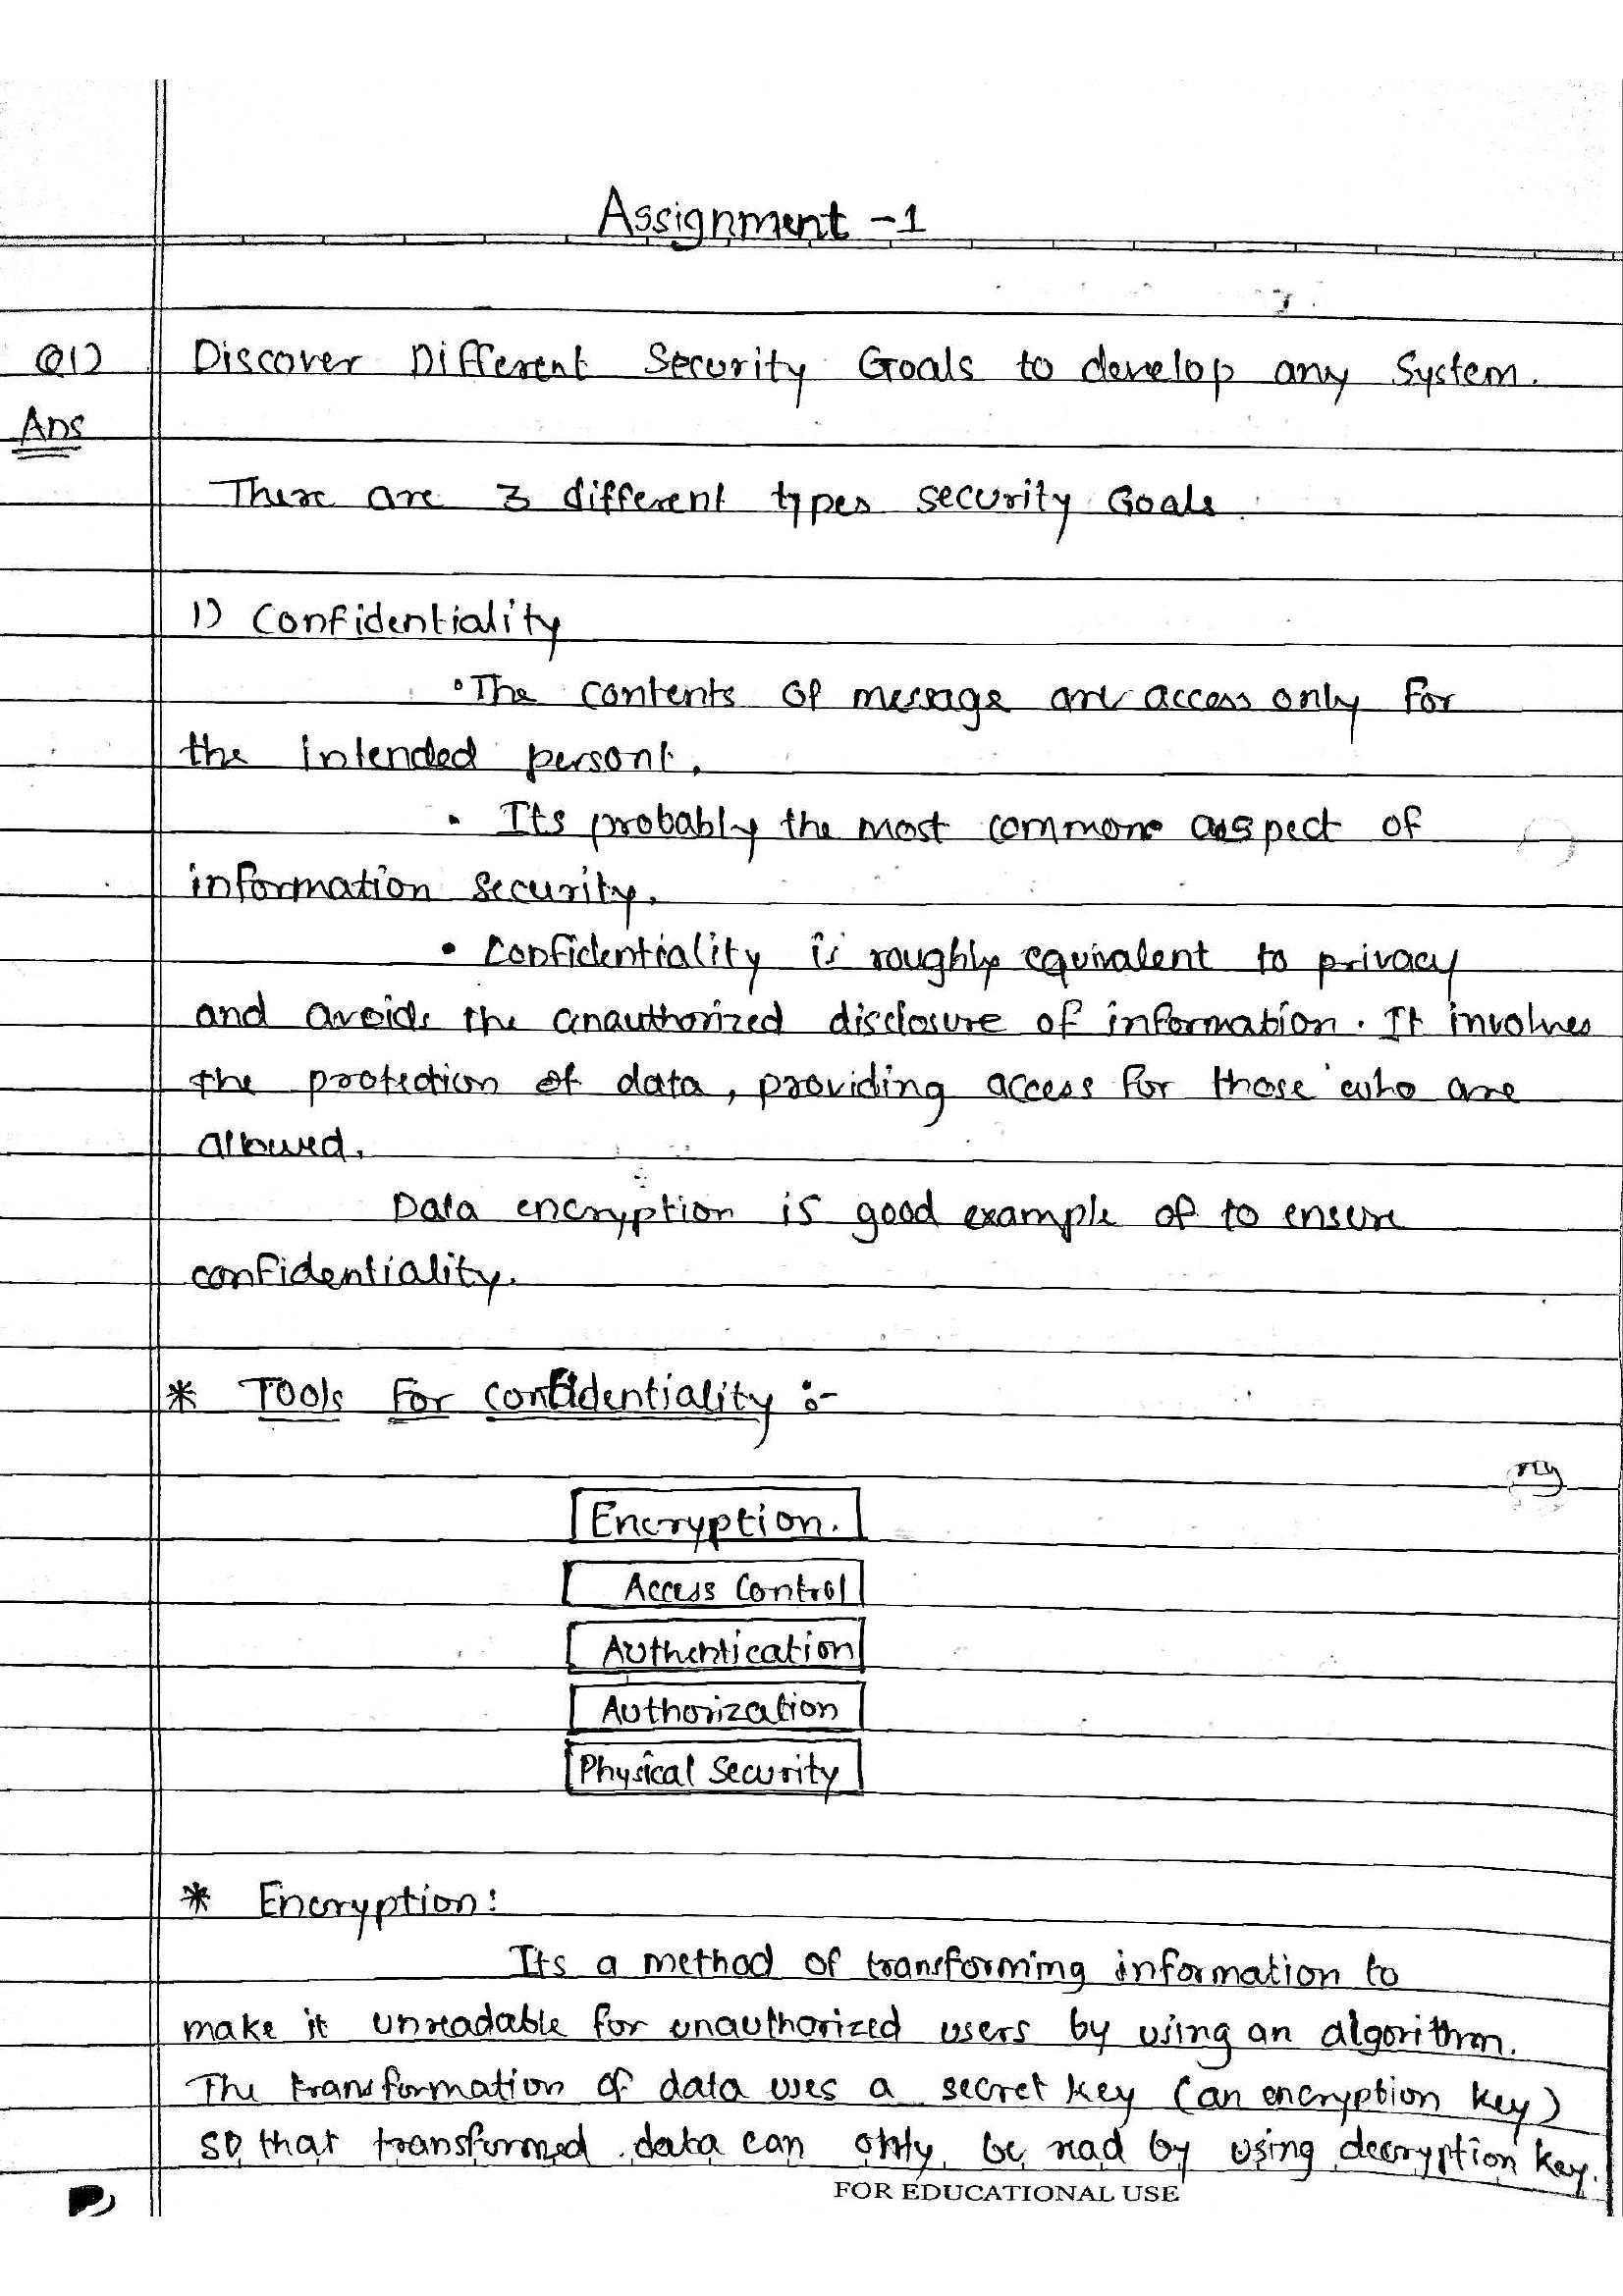 Assignment -1
Q1) Discover Different Security Goals to develop any System.
Ans
There are 3 different types security Goals.
1) Confidentiality
• The contents of message are access only for
the intended person.
• Its probably the most common aspect of
information security.
• Confidentiality is roughly equivalent to privacy
and avoids the unauthorized disclosure of information. It involves
the protection of data, providing access for those who are
allowed.
Data encryption is good example of to ensure
confidentiality.
* Tools For Confidentiality :-
Encryption.
Access Control
Authentication
Authorization
Physical Security
* Encryption:
Its a method of transforming information to
make it unreadable for unauthorized users by using an algorithm.
The transformation of data uses a secret key (an encryption key)
so that transformed data can only be read by using decryption key.
FOR EDUCATIONAL USE